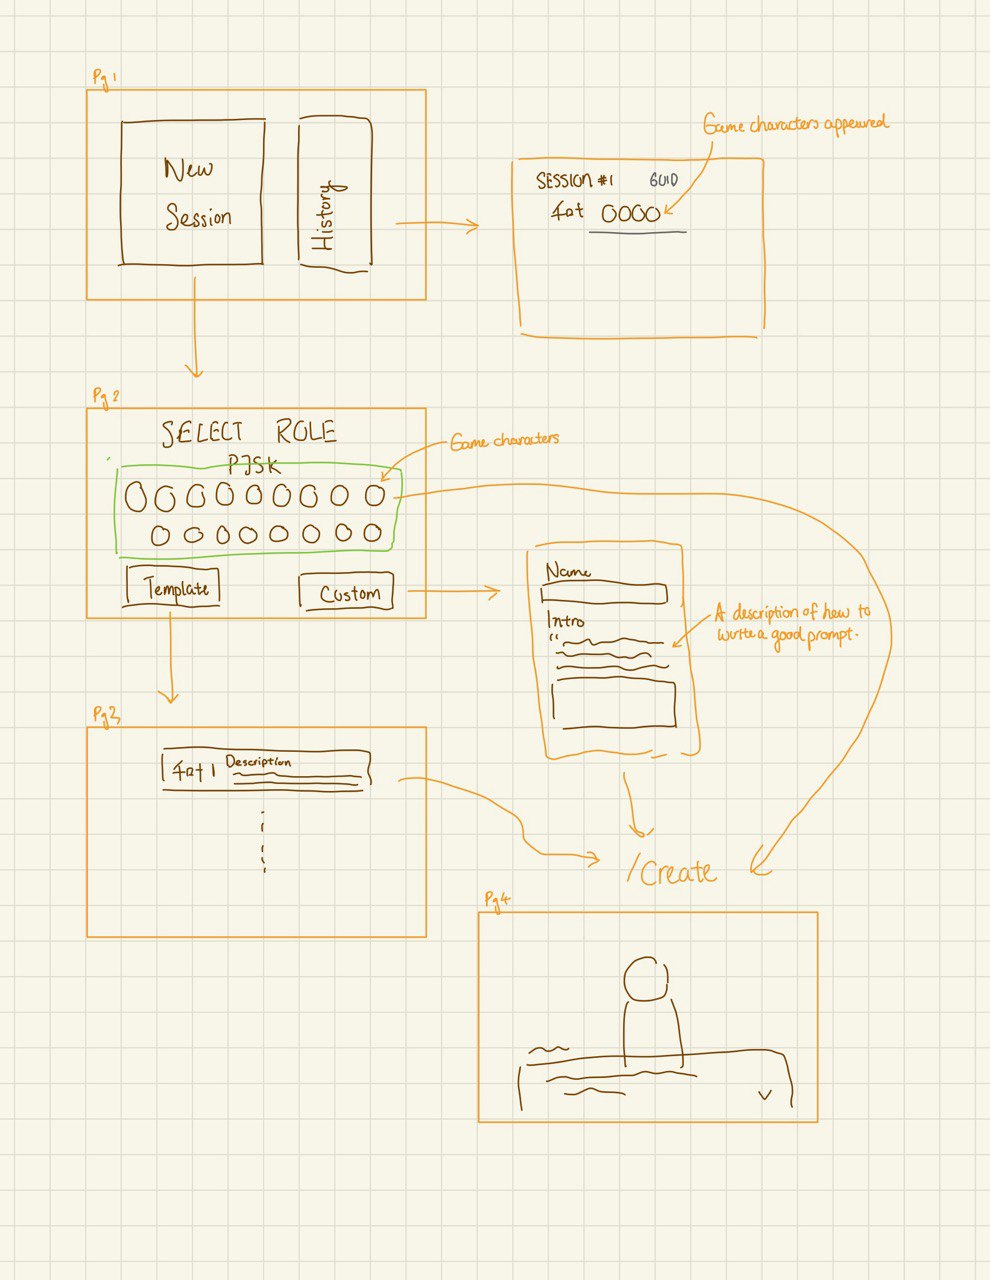 Pg 1
New
Session
History
Game characters appeared
SESSION #1 GUID
Pg 2
SELECT ROLE
PJSK
Game characters
Template
Custom
Name
Intro
A description of how to
write a good prompt.
Pg 3
Description
/Create
Pg 4